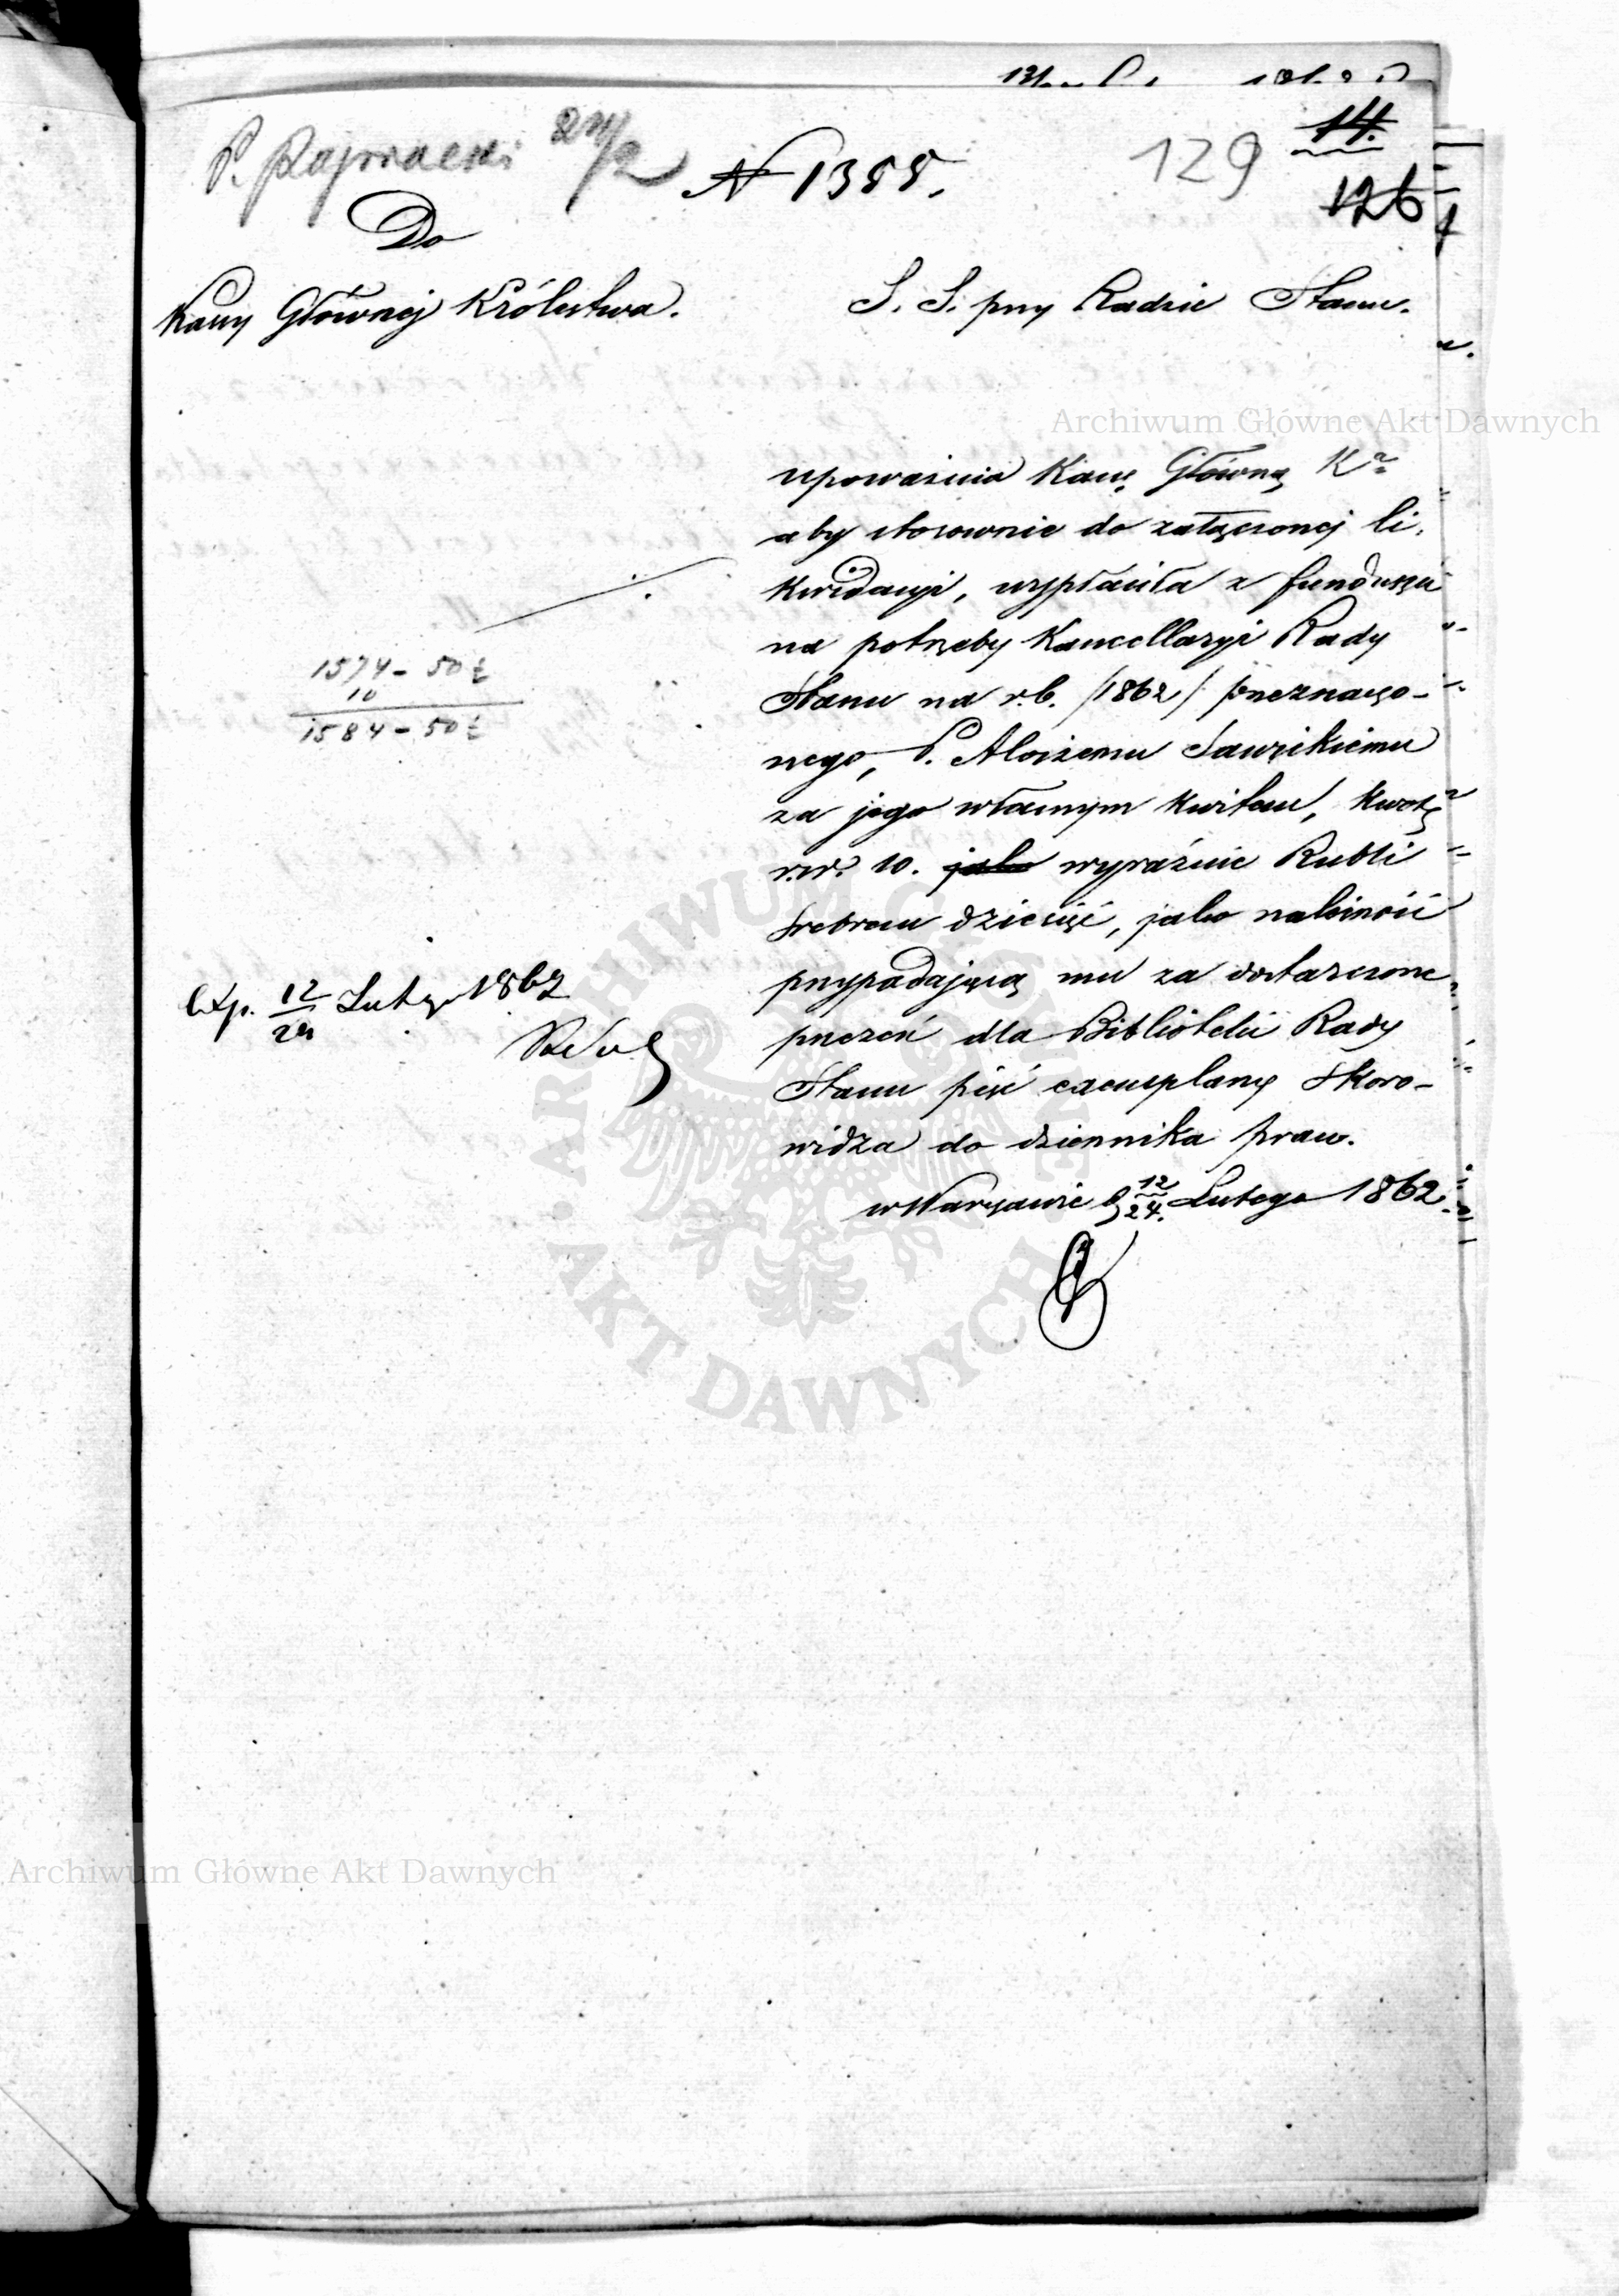 129 14.
126
P. 24/2 N 1388.
Do
Kassy Głównej Królestwa.
S. S. przy Radzie Stanu.
Archiwum Główne Akt Dawnych
upoważnia Kassę Główną K
aby stosownie do załączonej li-
kwidacyi, wypłaciła z funduszu
na potrzeby Kancellaryi Rady
Stanu na r. b. /1862/ przeznaczo-
nego, P. Aloizemu
za jego własnym kwitem, kwotę
rsr. 10. jako wyraźnie Rubli
srebrem dziesięć, jako należność
przypadającą mu za dostarczone
przezeń dla Biblioteki Rady
Stanu pięć exemplarzy Skoro-
widza do dziennika praw.
w Warszawie d 12/24. Lutego 1862
1574 - 50 ½
10
1584 - 50 ½
Exp. 12/24 Lutego 1862
ARCHIWUM GŁÓWNE AKT DAWNYCH
Archiwum Główne Akt Dawnych